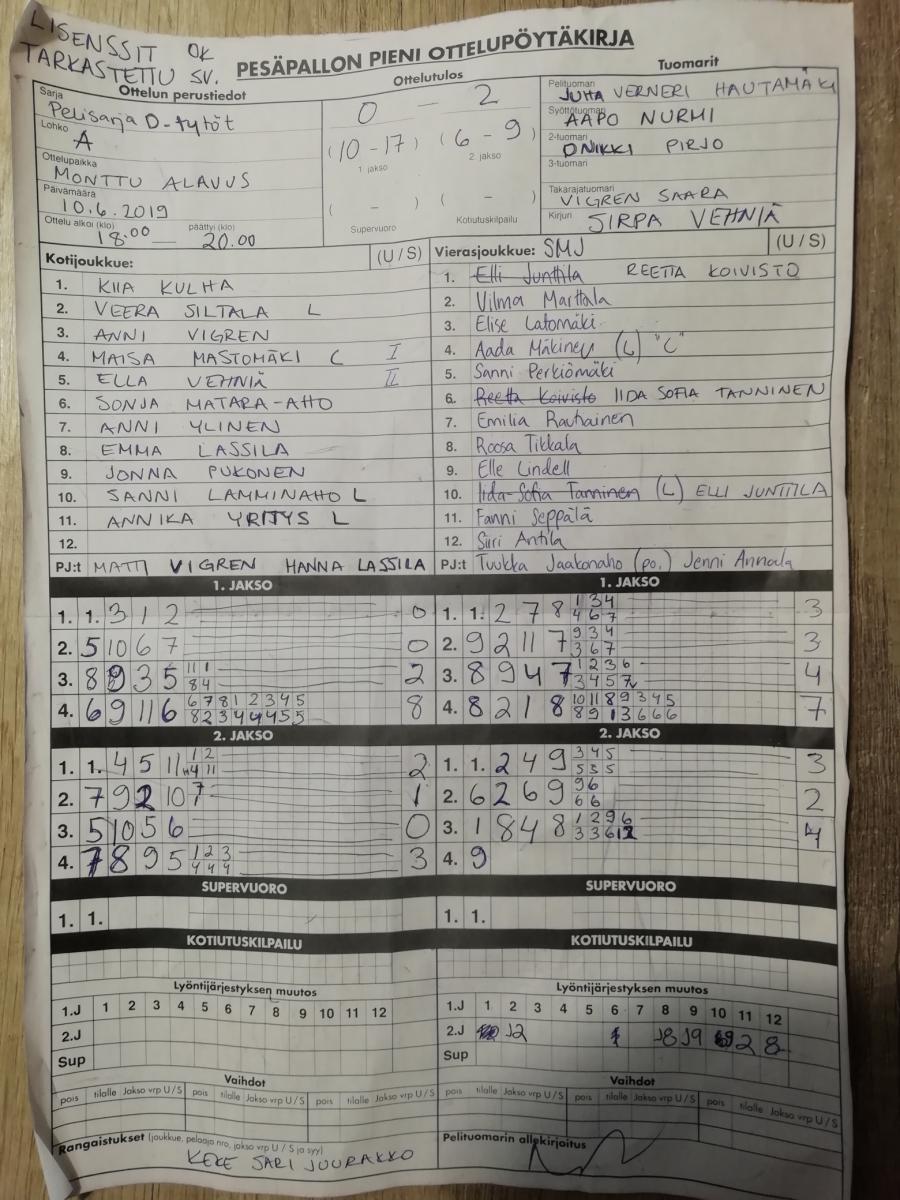 LISENSSIT OK
TARKASTETTU SV.
PESÄPALLON PIENI OTTELUPÖYTÄKIRJA
Ottelun perustiedot
Sarja
Pelisarja D-tytöt
Lohko
A
Ottelupaikka
MONTTU ALAVUS
Päivämäärä
10.6.2019
Ottelu alkoi (klo) päättyi (klo)
18.00 — 20.00
Ottelutulos
0 - 2
(10 - 17) (6 - 9)
1 jakso 2. jakso
( - ) ( - )
Supervuoro Kotiutuskilpailu
Tuomarit
Pelituomari
JUHA VERNERI HAUTAMÄKI
Syöttötuomari
AAPO NURMI
2-tuomari
ONIKKI PIRJO
3-tuomari
Takarajatuomari
VIGREN SAARA
Kirjuri
SIRPA VEHNIÄ
Kotijoukkue: (U / S)
1. KIIA KULHA
2. VEERA SILTALA L
3. ANNI VIGREN
4. MAISA MASTOMÄKI C I
5. ELLA VEHNIÄ II
6. SONJA MATARA-AHO
7. ANNI YLINEN
8. EMMA LASSILA
9. JONNA PUKONEN
10. SANNI LAMMINAHO L
11. ANNIKA YRITYS L
12.
PJ:t MATTI VIGREN HANNA LASSILA
Vierasjoukkue: SMJ (U / S)
1. Elli Junttila REETTA KOIVISTO
2. Vilma Marttala
3. Elise Latomäki
4. Aada Mäkinen (L) "C"
5. Sanni Perkiömäki
6. Reetta Koivisto IIDA SOFIA TANNINEN
7. Emilia Rauhainen
8. Roosa Tikkala
9. Elle Lindell
10. Iida-Sofia Tanninen (L) ELLI JUNTTILA
11. Fanni Seppälä
12. Siiri Antila
PJ:t Tuukka Jaakonaho (po.) Jenni Annala
1. JAKSO
1. 1. 3 1 2 0
2. 5 10 6 7 0
3. 8 9 3 5 2
4. 6 9 11 6 8
1. JAKSO
1. 1. 2 7 8 1 3 4 3
4 6 7
2. 9 2 11 7 9 3 4 3
3 6 7
3. 8 9 4 7 1 2 3 6 4
4. 8 2 1 8 10 11 8 9 3 4 5 7
8 9 1 3 6 6 6
2. JAKSO
1. 1. 4 5 11 1 2 2
2. 7 9 2 10 1
3. 5 10 5 6 0
4. 7 8 9 5 1 2 3 3
4 4 4
2. JAKSO
1. 1. 2 4 9 3 4 5 3
5 5 5
2. 6 2 6 9 9 6 2
6 6
3. 1 8 4 8 1 2 9 6 4
3 3 6 12
4. 9
SUPERVUORO
1. 1.
SUPERVUORO
1. 1.
KOTIUTUSKILPAILU
KOTIUTUSKILPAILU
Lyöntijärjestyksen muutos
1.J 1 2 3 4 5 6 7 8 9 10 11 12
2.J
Sup
Lyöntijärjestyksen muutos
1.J 1 2 3 4 5 6 7 8 9 10 11 12
2.J
Sup
Vaihdot
pois tilalle Jakso vrp U / S pois tilalle Jakso vrp U / S pois tilalle Jakso vrp U / S
Vaihdot
pois tilalle Jakso vrp U / S pois tilalle Jakso vrp U / S pois tilalle Jakso vrp U / S
Rangaistukset (joukkue, pelaaja nro, jakso vrp U / S ja syy)
KEKE JARI JUURAKKO
Pelituomarin allekirjoitus